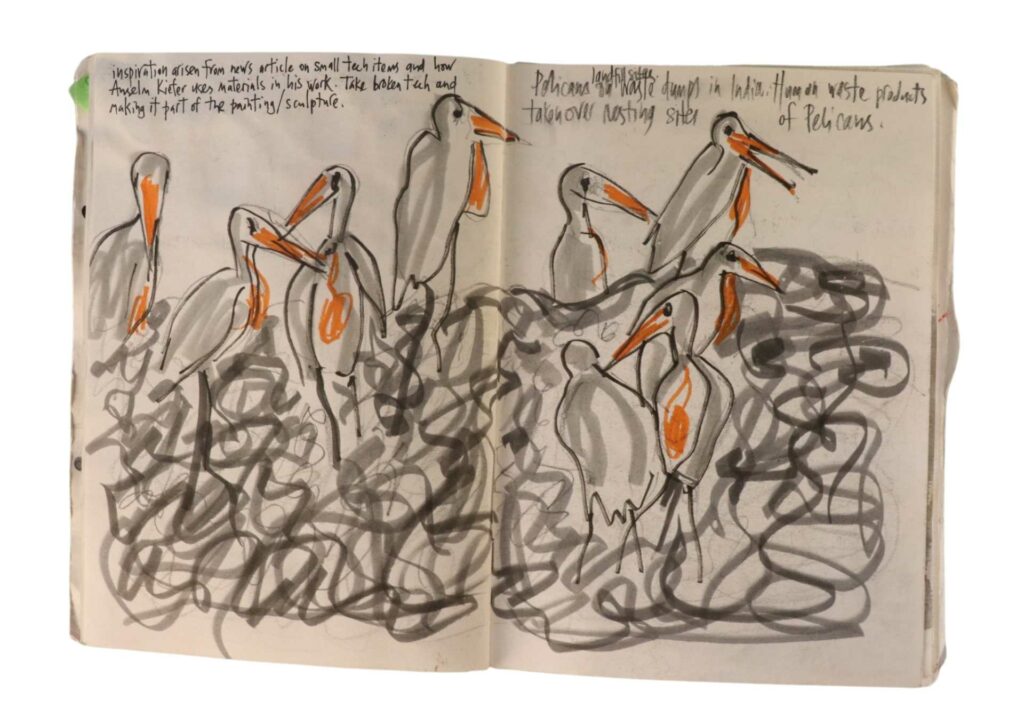 inspiration arisen from news article on small tech items and how
Anselm Kiefer uses materials in his work. Take broken tech and
making it part of the painting/sculpture.
landfill sites
Pelicans waste dumps in India. Human waste products
takenover nesting sites of Pelicans.